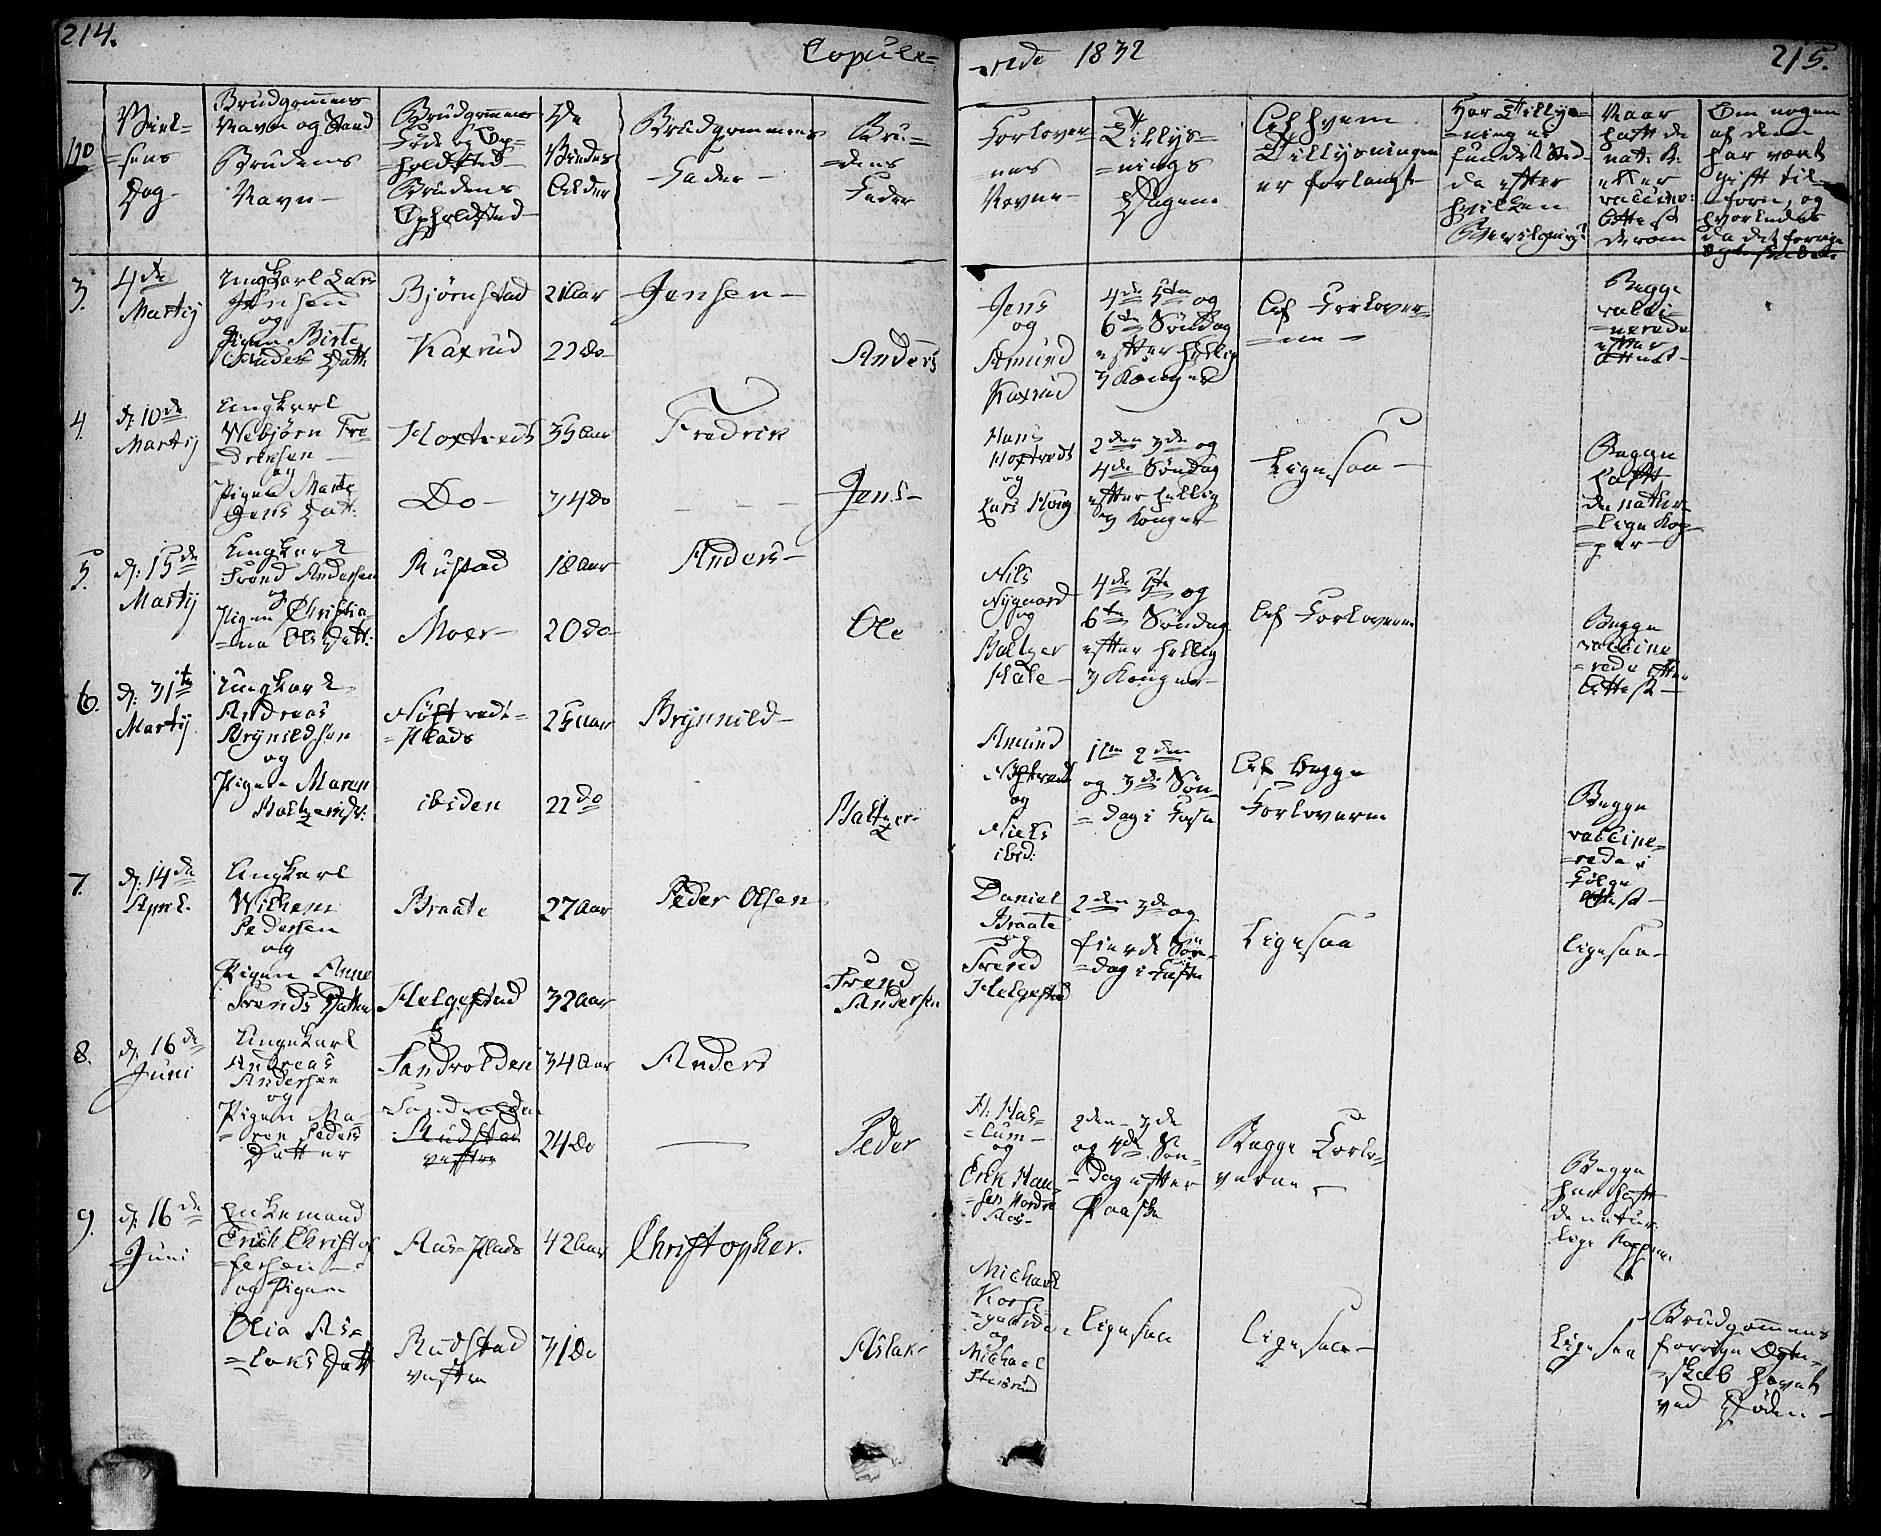 214.
Copule=
=rede 1832
215.
No
Viel=
=sens
Dag
Brudgommens
Navn og Stand
Brudens
Navn
Brudgommens
Føde og Op=
=holdsted
Brudens
Opholdsted
De
Viedes
Alder
Brudgommens
Fader
Bru=
=dens
Fader
Forlover
=nes
Navne
Tillys=
=nings
Dagene
Af hvem
Tillysningen
er forlangt
Har Tillys=
=ning ei
fundet Sted
da efter
hvilken
Bevilgning?
Naar
haft de
nat: K.
eller
vaccine:
Attest
derom
Om nogen
af dem
har vært
gift til=
=forn, og
hvorledes
da det forrige
Egteskabet
3.
4de
Martij
Ungkarl Lars
Jensen
og
Pigen Birte
Anders Datt:
Bjørnstad
Kaxrud
21 Aar
22 Do
Jensen
Anders
Jens
og
Amund
Kaxrud
4de 5te og
6te Søndag
efter hellig
3 Konger
Af Forlover=
=ne
Begge
vacci=
=nerede
efter
Attest
4.
d: 10de
Martij
Ungkarl
Webjørn Fre=
=driksen
og
Pigen Marte
Jens Datt:
Hoxtvedt
Do
35 Aar
34 Do
Fredrik
Jens
Hans
Hoxtvedt
og
Lars Houg
2den 3de og
4de Søndag
efter hellig
3 Konger
Ligesaa
Begge
haft
de natur=
=lige Kop=
=per
5.
d: 15de
Martij
Ungkarl
Trond Andersen
og
Pigen Christia=
=na Ols Datt:
Rustad
Moer
18 Aar
20 do
Anders
Ole
Nils
Nygaard
og
Baltzer
Hale
4de 5te og
6te Søndag
efter hellig
3 Konger
Af Forloverne
Begge
vaccine
=rede efter
Attest
6.
d: 31te
Martij
Ungkarl
Andreas
Brynildsen
og
Pigen Maren
Baltzersdt:
=Plads
ibiden
25 Aar
22 do
Brynnild
Baltzer
Amund
og
Niels
ibid:
1ste 2den
og 3de Søn=
=dag i Faste
Af begge
Forloverne
Begge
vaccine=
=rede i
Følge
Attest
7.
d: 14de
April
Ungkarl
Wilhelm
Pedersen
og
Pigen Anne
Trends Datter
Braate
Helgestad
27 Aar
32 Aar
Peder Olsen
Trend
Andersen
Daniel
Braate
og
Trend
Helgestad
2den 3de og
fierde Søn=
=dag i Faste
Ligesaa
Ligesaa
8.
d: 16de
Juni
Ungekarl
Andreas
Andersen
og
Pigen Ma=
=ren Peders
Datter
Sandvolden
Sandvolden
Rudstad
vestre
34 Aar
24 Do
Anders
Peder
H: Has=
=lum
og
Erik Han=
=sen Nordre
Aas
2den 3de
og 4de Søn=
=dag efter
Paaske
Begge Forlo=
verne
Begge
har haft
de natur
lige Kopper
9.
d: 16de
Juni
Enkemand
Erich Christof
=fersen
og Pigen
Olia As=
=laks Datt
Aas=Plads
Rudstad
vestre
42 Aar
31 Do
Christopher.
Aslak
Michael
og
Michael
Ligesaa
Ligesaa
Ligesaa
Brudgommens
forrige Egte=
=skab hævet
ved Døden